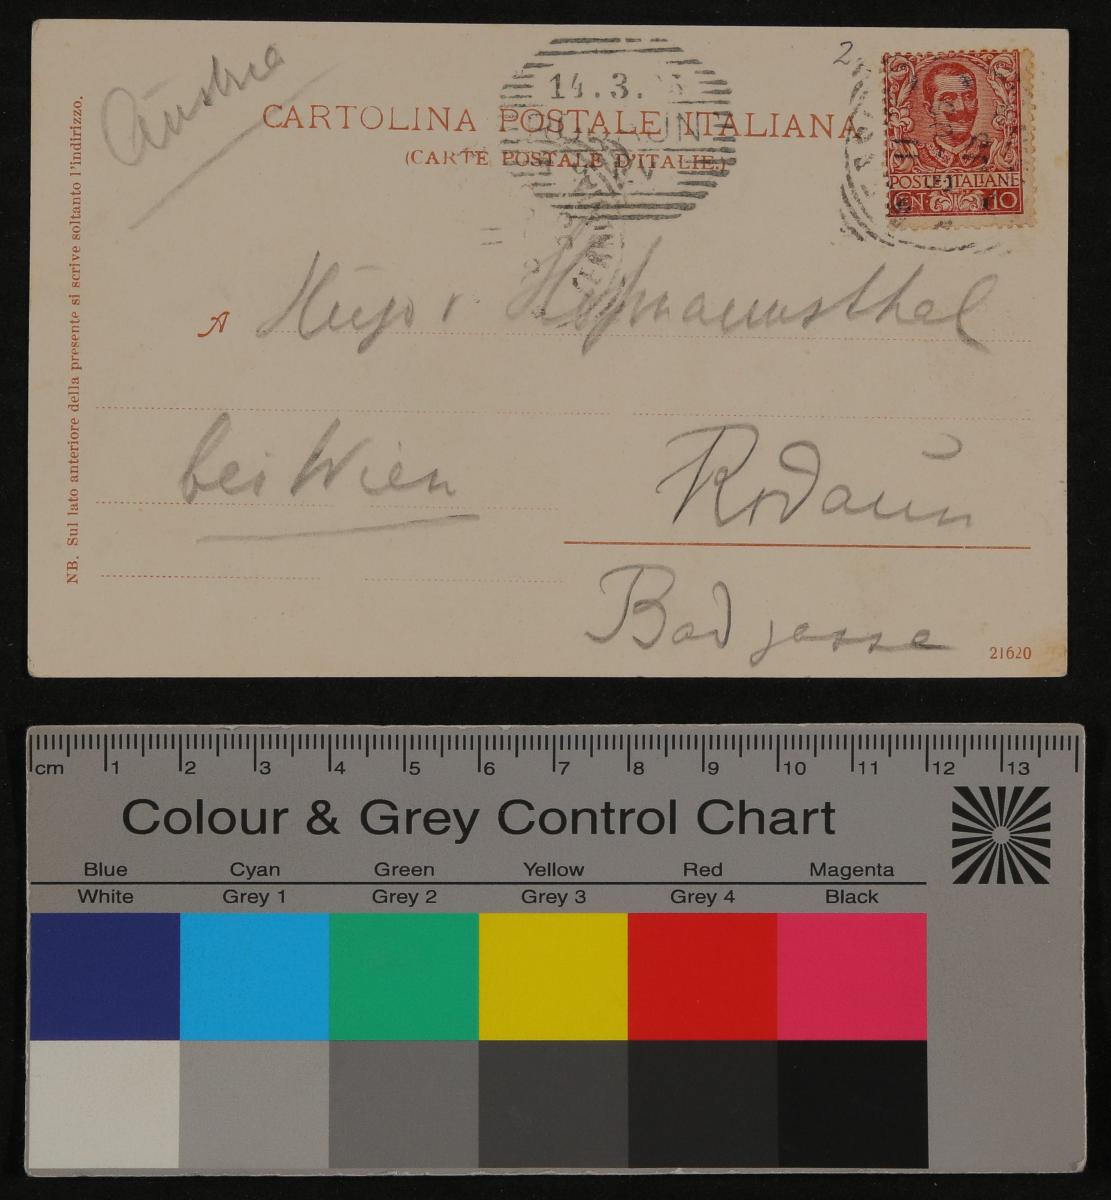 Austria
2
14.3.
RODAUN
CARTOLINA POSTALE ITALIANA
(CARTE POSTALE D'ITALIE.)
POSTE ITALIANE
CEN. 10
NB. Sul lato anteriore della presente si scrive soltanto l'indirizzo.
A Hugo v Hofmannsthal
bei Wien
Rodaun
Badgasse
21620
cm 1 2 3 4 5 6 7 8 9 10 11 12 13
Colour & Grey Control Chart
Blue Cyan Green Yellow Red Magenta
White Grey 1 Grey 2 Grey 3 Grey 4 Black